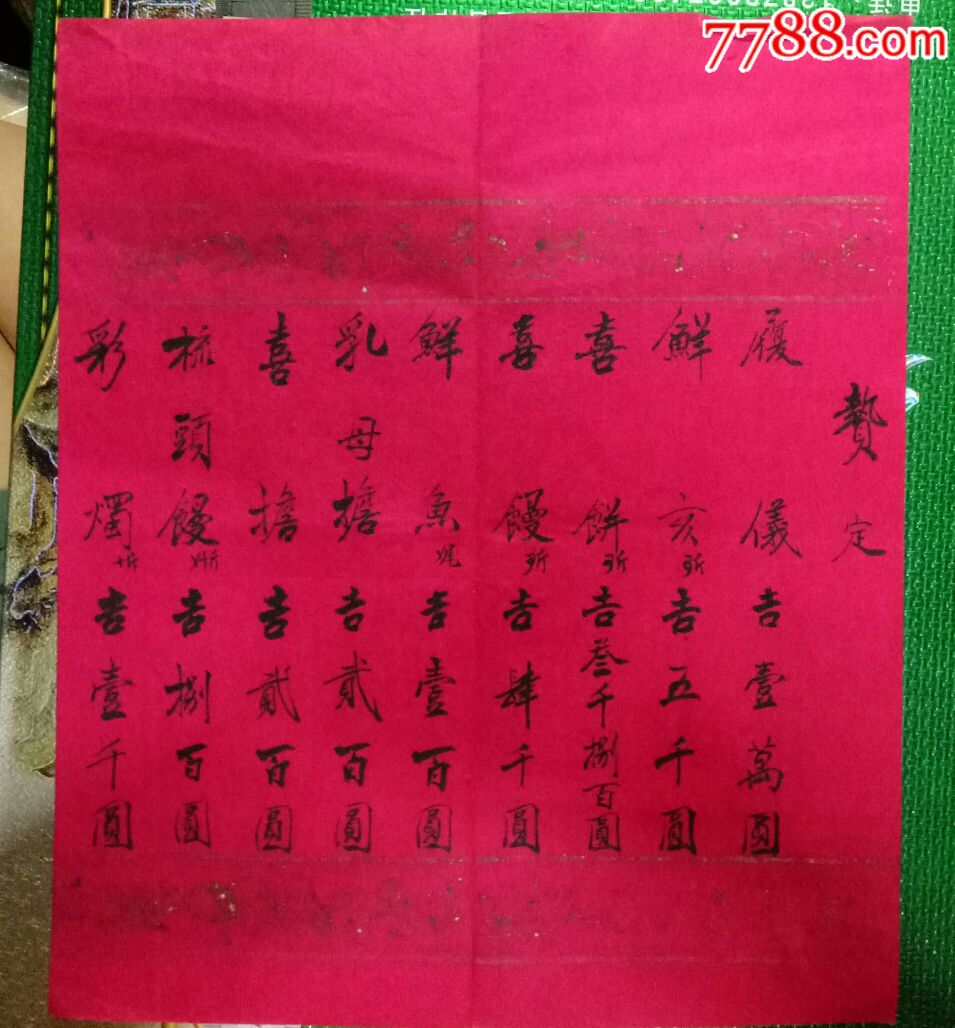 贄定
履儀吉壹萬圓
鮮亥吉五千圓
喜餅吉叁千捌百圓
喜饅吉肆千圓
鮮魚吉壹百圓
乳母擔吉貳百圓
喜擔吉貳百圓
梳頭饅吉捌百圓
彩燭吉壹千圓
7788.com